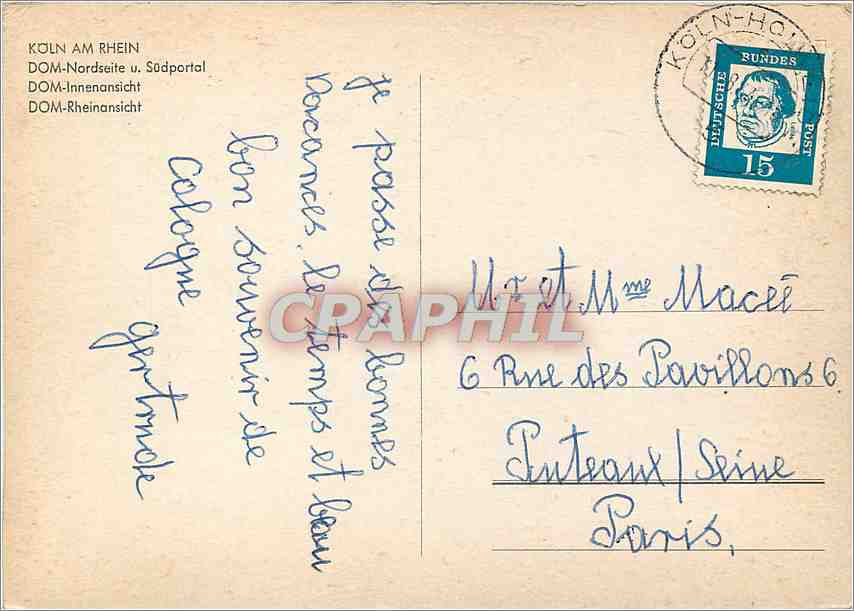 KÖLN AM RHEIN
DOM-Nordseite u. Südportal
DOM-Innenansicht
DOM-Rheinansicht
je passe des bonnes
vacances, le temps et beau
bon souvenir de
Cologne
gertrude
KÖLN-
DEUTSCHE BUNDES POST
15
Mr et Mme Maceé
6 Rue des Pavillons 6
Puteaux/Seine
Paris,
CPAPHIL